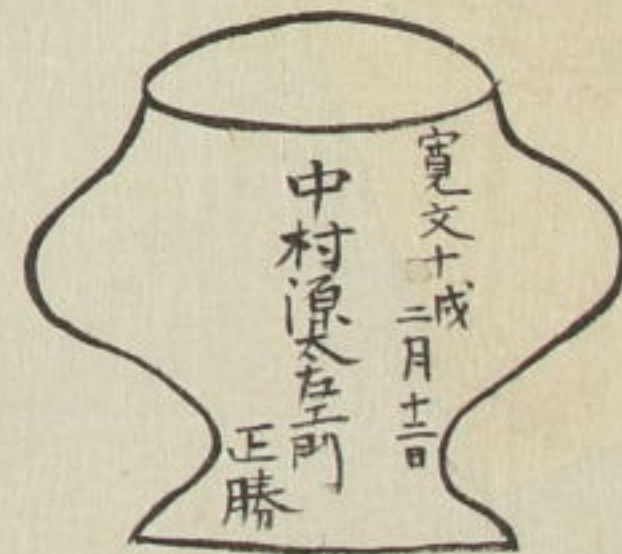 寛文十戌
二月十二日
中村源太左エ門
正勝